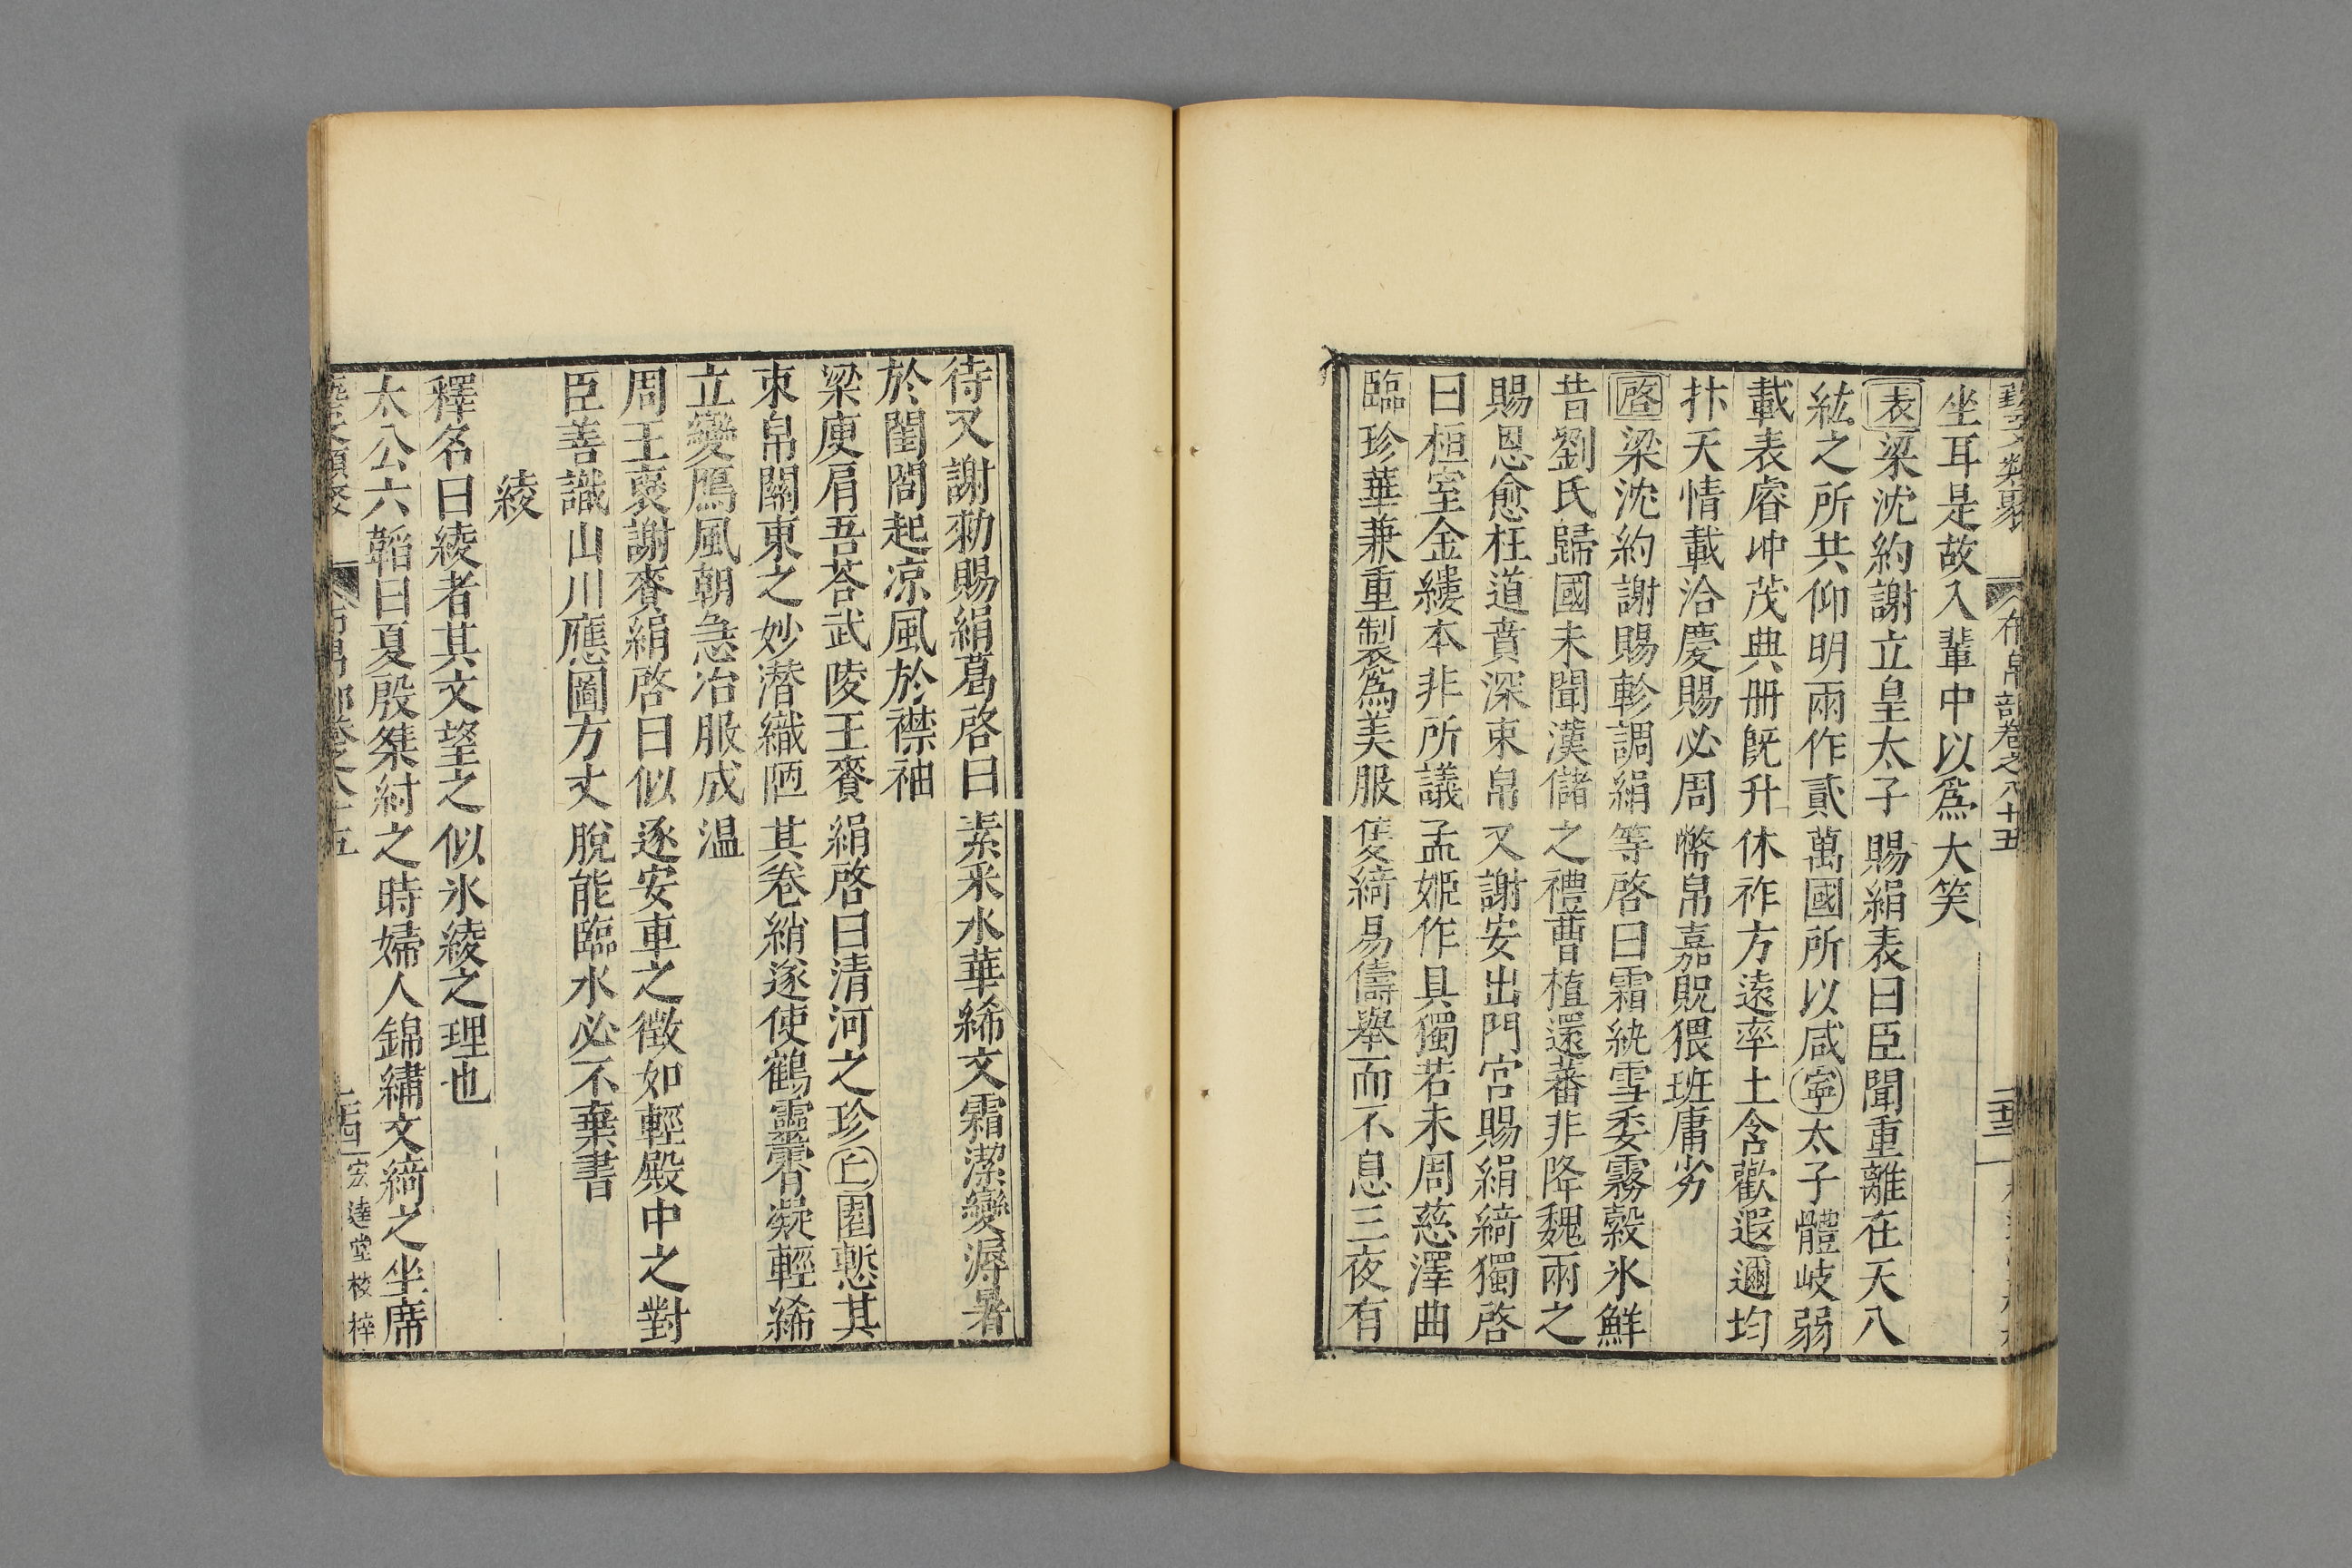 藝文類聚 布帛部卷之八十五
坐耳是故入輩中以爲大笑
表梁沈約謝立皇太子賜絹表曰臣聞重離在天八
紘之所共仰明兩作貳萬國所以咸寧太子體岐弱
載表睿冲茂典册旣升休祚方遠率土含歡遐邇均
抃天情載洽慶賜必周幣帛嘉貺猥班庸劣
啓梁沈約謝賜軫調絹等啓曰霜紈雪委霧縠氷鮮
昔劉氏歸國未聞漢儲之禮曹植還蕃非降魏兩之
賜恩愈枉道賁深束帛又謝安出門宮賜絹綺獨啓
曰桓室金縷本非所議孟姬作具獨若未周慈澤曲
臨珍華兼重製爲美服隻綺易儔舉而不息三夜有
待又謝勑賜絹葛啓曰素采水華絺文霜潔變溽暑
於閨閤起凉風於襟袖
梁庾肩吾荅武陵王賚絹啓曰清河之珍丘園慙其
束帛關東之妙潜織陋其卷綃遂使鶴靈霄凝輕絺
立變鴈風朝急冶服成温
周王襃謝賚絹啓曰似逐安車之徵如輕殿中之對
臣善識山川應圖方丈脫能臨水必不棄書
綾
釋名曰綾者其文望之似氷綾之理也
太公六韜曰夏殷桀紂之時婦人錦繡文綺之坐席
藝文類聚 布帛部卷之八十五 宏達堂校梓